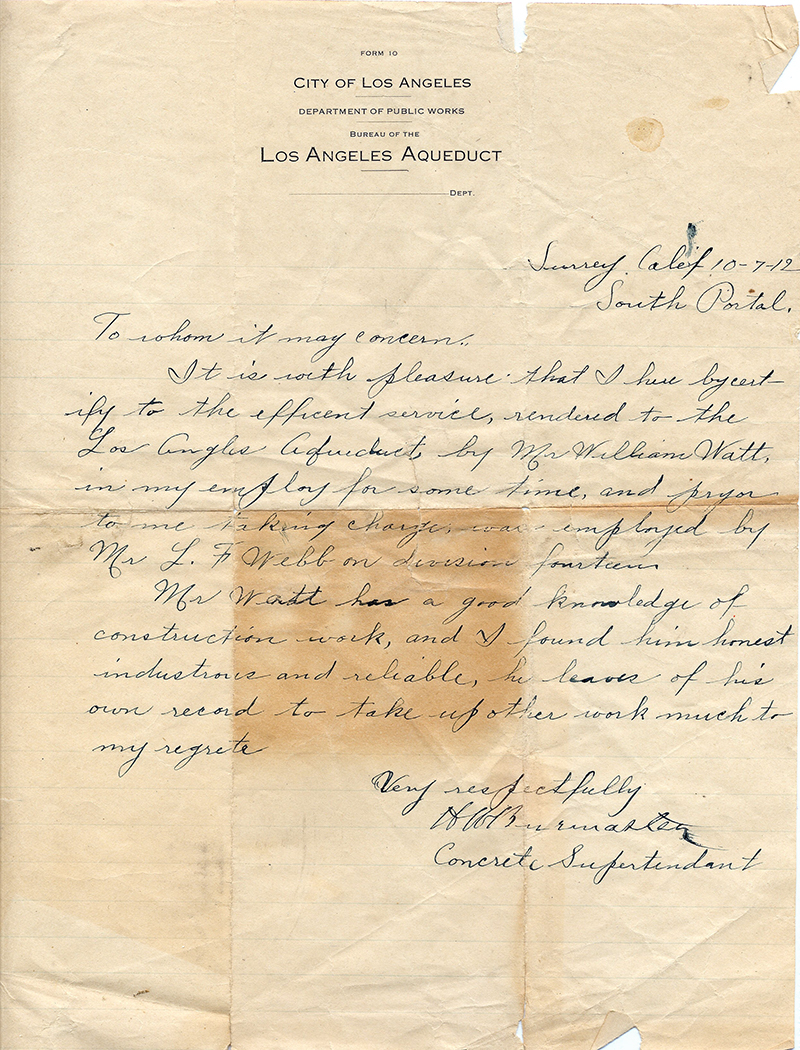 FORM 10
CITY OF LOS ANGELES
DEPARTMENT OF PUBLIC WORKS
BUREAU OF THE
LOS ANGELES AQUEDUCT
DEPT.
Surrey, Calif 10-7-12
South Portal.
To whom it may concern..
It is with pleasure that I here bycert-
ify to the efficent service, rendered to the
Los Angles Aqueduct, by Mr William Watt,
in my employ for some time, and pryor
to me taking charge, was employed by
Mr L. F Webb on division fourteen
Mr Watt has a good knowledge of
construction work, and I found him honest
industrous and reliable, he leaves of his
own record to take up other work much to
my regrete
Very respectfully
Concrete Supertendant